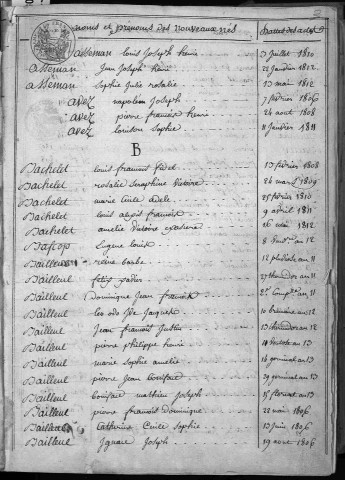 noms et prénoms des nouveaux nés Dattes des actes
asseman louis Joseph henri 3 juillet 1810
asseman Jean Joseph henri 22 janvier 1812
asseman Sophie Julie rosalie 13 mai 1812
avez napoleon Joseph 7 fevrier 1806
avez pierre francois henri 24 aout 1808
avez louison Sophie 8 Janvier 1811
B
Bachelet louis francois fidel 13 fevrier 1808
Bachelet rosalie Seraphine Victoire 26 mars 1809
Bachelet marie Cécile adele 25 fevrier 1810
Bachelet louis aloïs francois 9 avril 1811
Bachelet amelie Victoire 16 mai 1812
Bascop Eugene louis 8 an 12
Bailleul reine barbe 12 pluviose an 11
Bailleul felix 27 an 11
Bailleul Dominique Jean francois 2e Comple. an 11
Bailleul leo Jacques 10 brumaire an 12
Bailleul Jean francois Justin 13 an 12
Bailleul pierre philippe henri an 13
Bailleul marie Sophie amelie 16 germinal an 13
Bailleul pierre Jean boniface 29 germinal an 13
Bailleul boniface mathieu Joseph 15 floreal an 13
Bailleul pierre francois dominique 22 mai 1806
Bailleul Catherine Cecile Sophie 13 Juin 1806
Bailleul Ignace Joseph 19 aout 1806